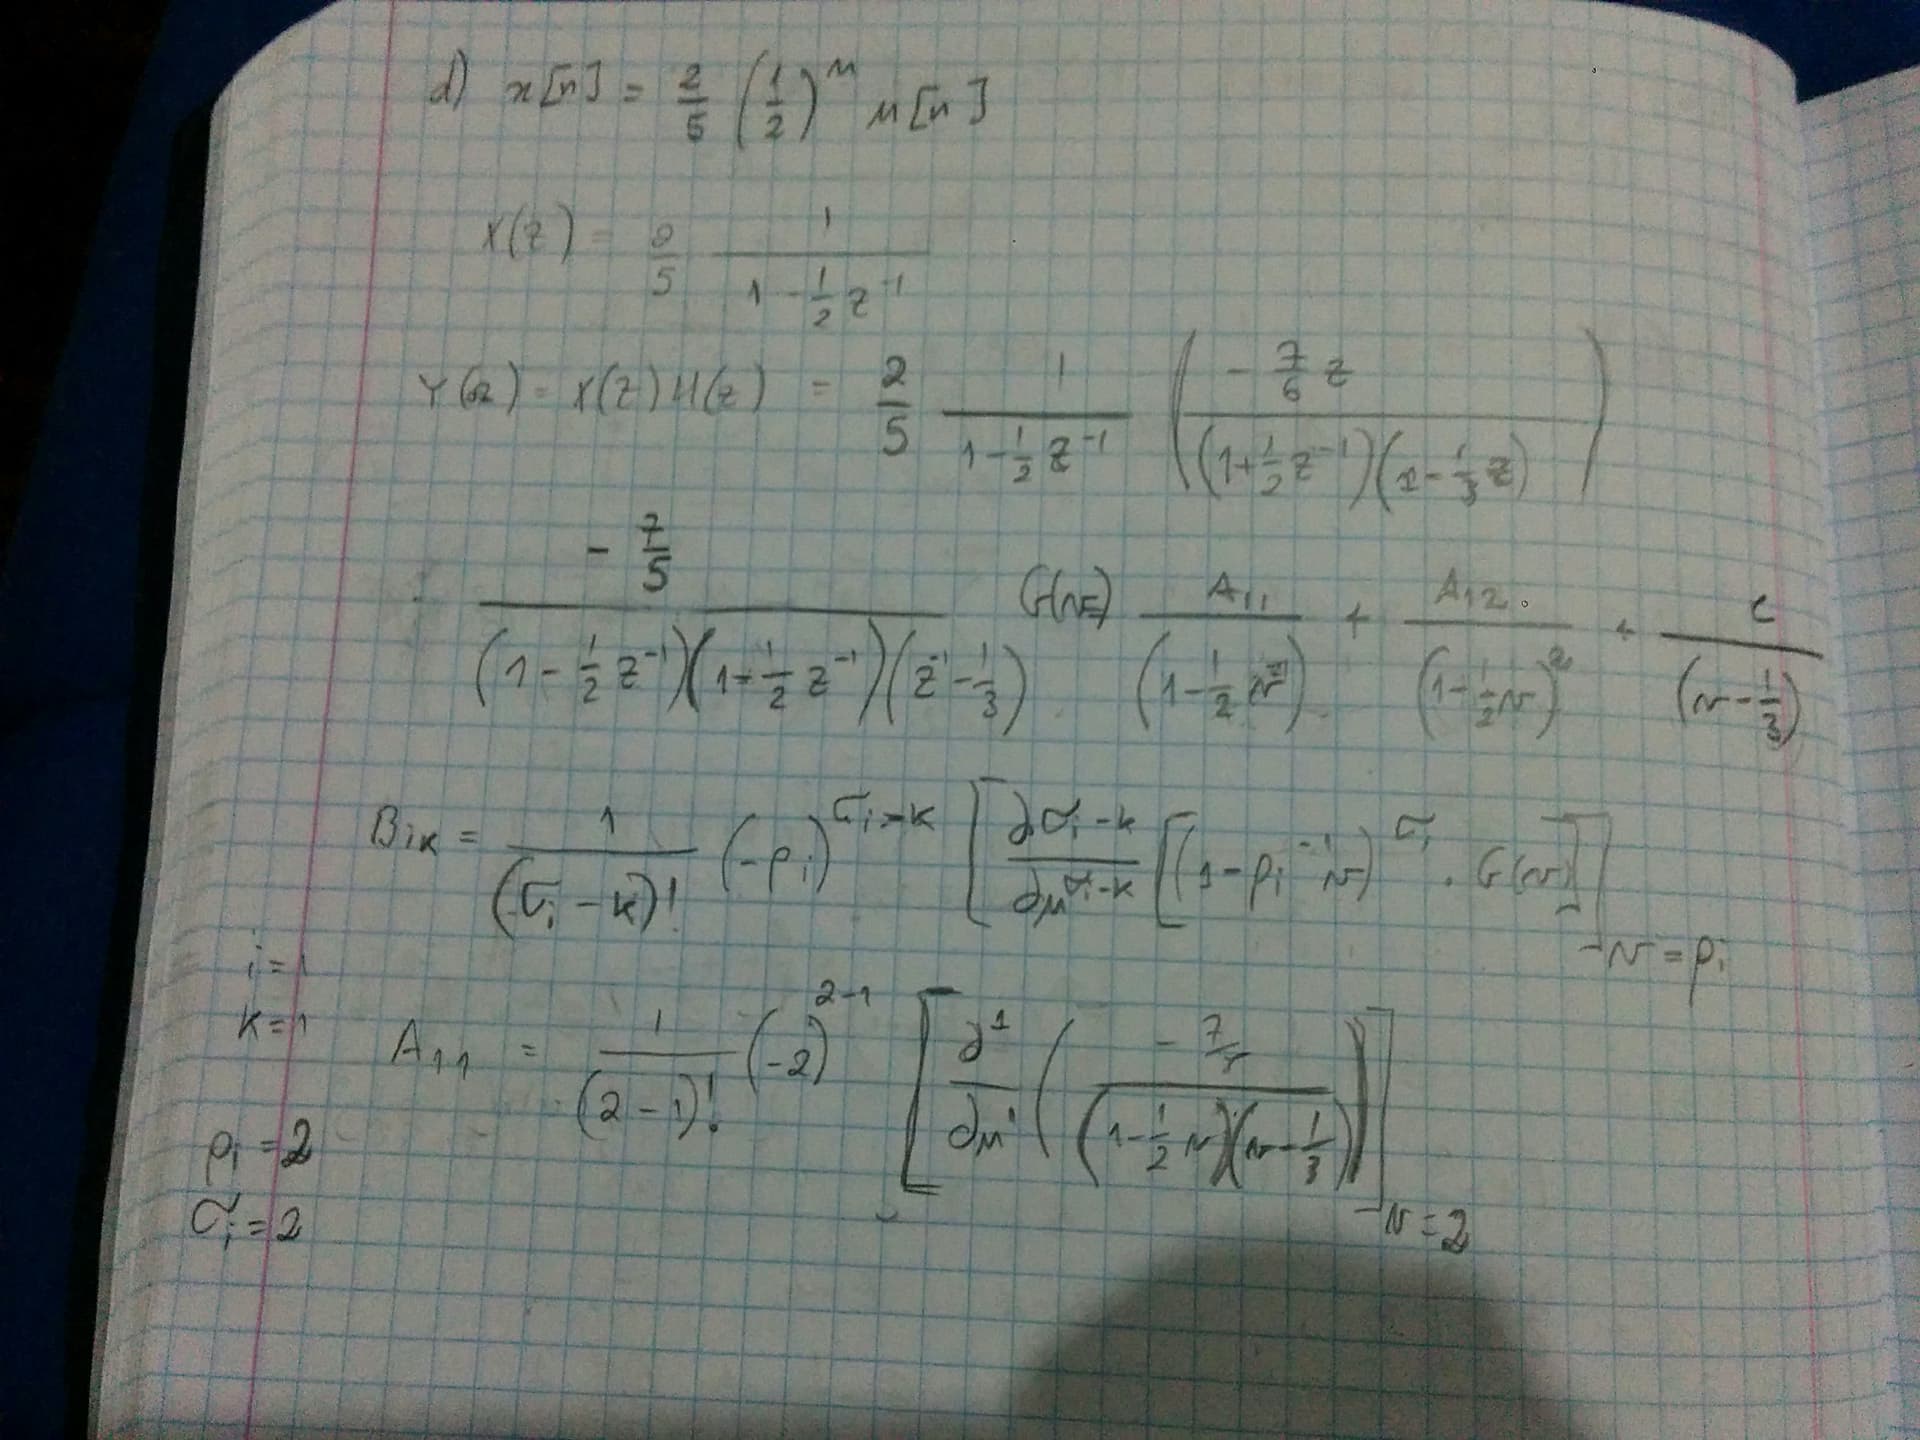 d) x[n] = 2/5 (1/2)^n u[n]
X(z) = 2/5 1/(1 - 1/2 z^-1)
Y(z) = X(z) H(z) = 2/5 1/(1 - 1/2 z^-1) (- 7/6 z / ((1 + 1/2 z^-1)(1 - 1/3 z)))
- 7/5 / ((1 - 1/2 z^-1)(1 - 1/2 z^-1)(z^-1 - 1/3)) G(v) = A11/(1 - 1/2 v) + A12/(1 - 1/2 v)^2 + C/(v - 1/3)
Bik = 1/(σi - k)! (-pi)^(σi - k) [∂^(σi - k)/∂v^(σi - k) [(1 - pi^-1 v)^σi . G(v)]] v = pi
i = 1
k = 1
A11 = 1/(2 - 1)! (-2)^(2-1) [∂^1/∂v^1 (- 7/5 / ((1 - 1/2 v)(v - 1/3)))] v = 2
pi = 2
σi = 2